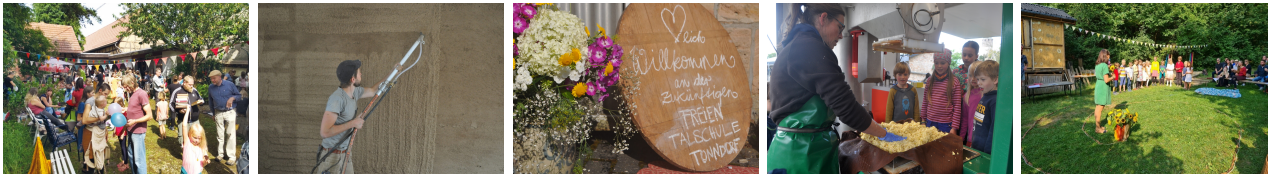 ♡lich
Willkommen
an der
Zukünftigen
FREIEN
TALSCHULE
TONNDORF